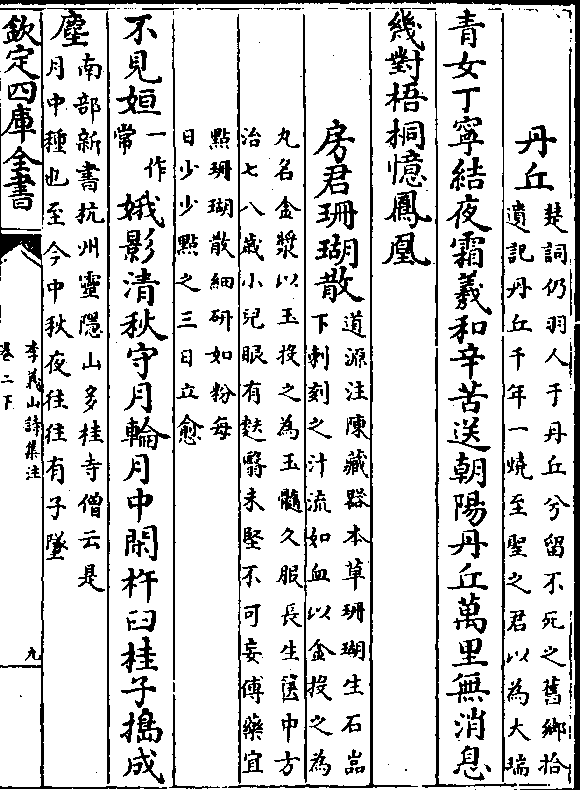 丹丘楚詞仍羽人于丹丘兮留不死之舊鄉拾
遺記丹丘千年一燒至聖之君以為大瑞
青女丁寧結夜霜羲和辛苦送朝陽丹丘萬里無消息
幾對梧桐憶鳳凰
房君珊瑚散道源注陳藏器本草珊瑚生石嵓
下刺刻之汁流如血以金投之為
丸名金漿以玉投之為玉髓久服長生醫中方
治七八歲小兒眼有麩翳未堅不可妄傅藥宜
點珊瑚散細研如粉每
日少少點之三日立愈
不見姮一作
常娥影清秋守月輪月中閑杵臼桂子擣成
塵南部新書杭州靈隱山多桂寺僧云是
月中種也至今中秋夜往往有子墜
欽定四庫全書
李義山詩集注
卷二下
九